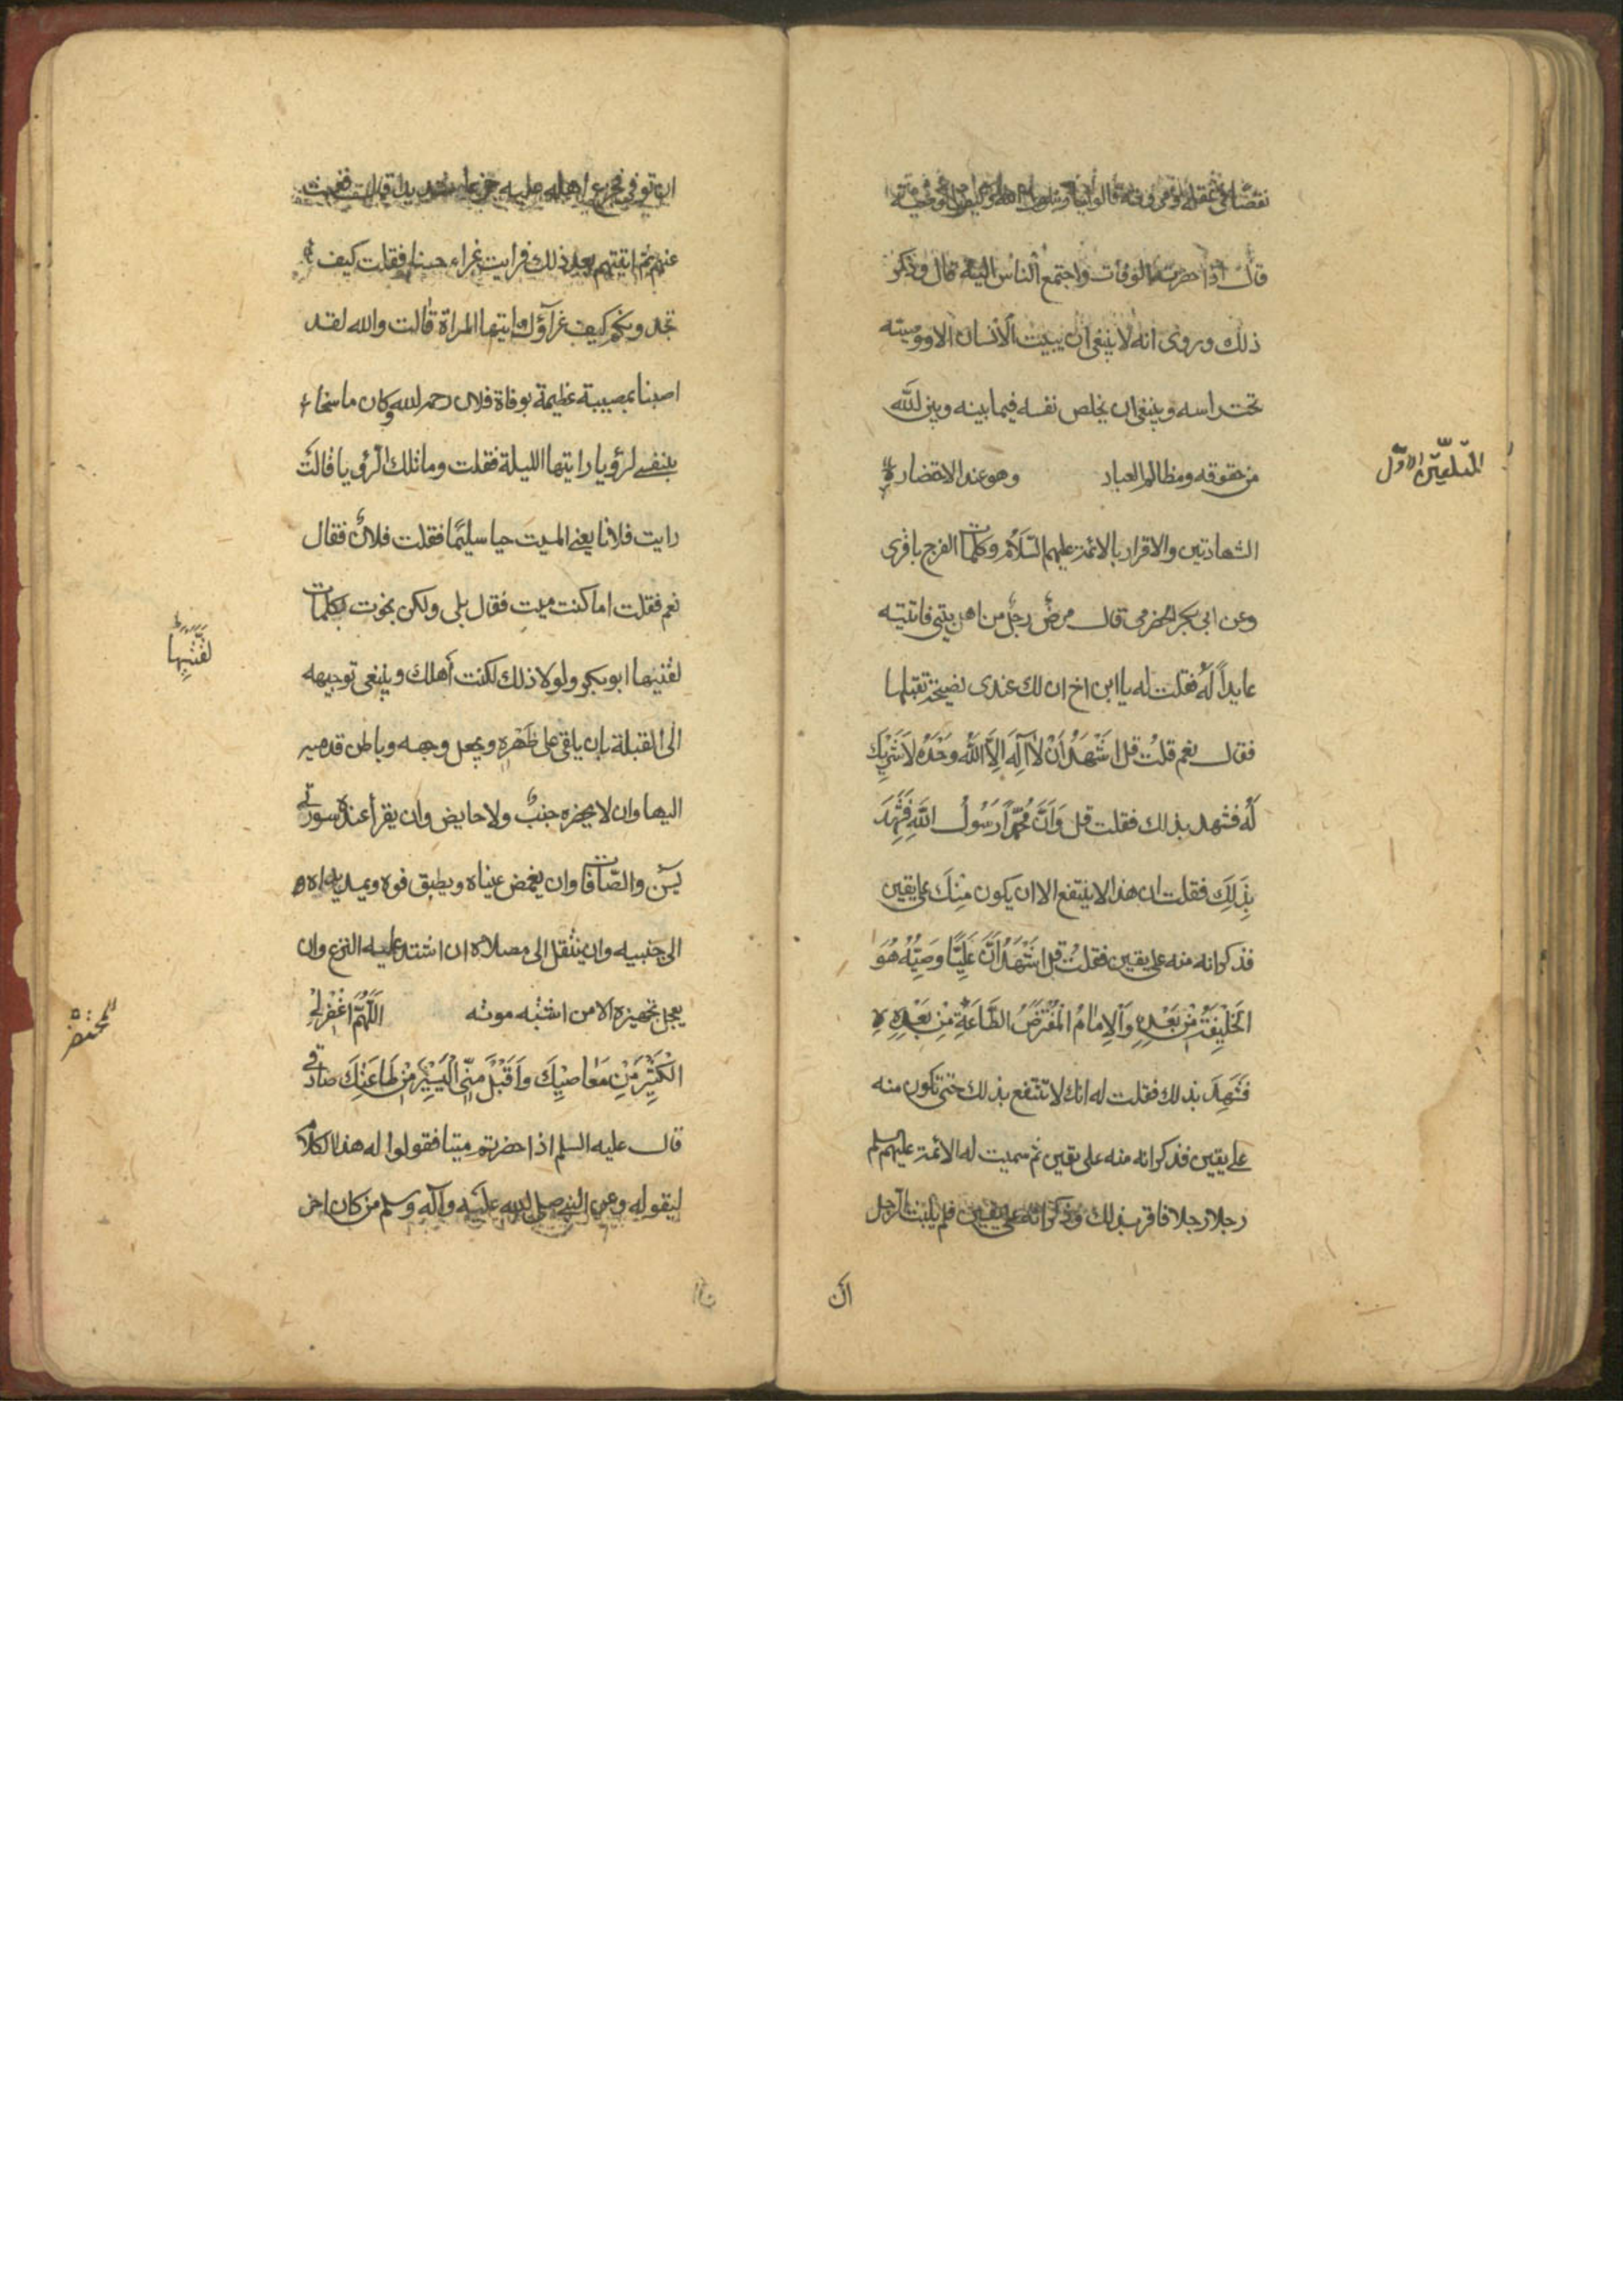 نقصانا فى عقله ومروته قالوا يا رسول الله وكيف الوصية
قال اذا حضرته الوفات واجتمع الناس اليه قال وذكر
ذلك وروى انه لا ينبغى ان يبيت الانسان الا ووصيته
تحت راسه وينبغى ان يخلص نفسه فيما بينه وبين الله
من حقوقه ومظالم العباد وهو عند الاحتضار
التلقين الاول
الشهادتين والاقرار بالائمة عليهم السلام وكلمات الفرج
وعن ابى بكر الحضرمى قال مرض رجل من اهل بيتى فاتيته
عايدا له فقلت له يا ابن اخ ان لك عندى نصيحة تقبلها
فقال نعم قلت قل اَشْهَدُ اَنْ لاٰ اِلٰهَ اِلاَّ اللهُ وَحْدَهُ لاَ شَرِيْكَ
لَهُ فشهد بذلك فقلت قل وَاَنَّ مُحَمَّداً رَسُولُ اللهِ فَشَهِدَ
بِذَلِكَ فقلت ان هذا لا ينتفع الا ان يكون مِنْكَ على يقين
فذكر انه منه على يقين فقلت قل اَشْهَدُ اَنَّ عَلِيًّا وَصِيُّهُ هُوَ
الخَلِيْفَةُ مِنْ بَعْدِهِ وَالاِمامُ المُفْتَرَضُ الطَّاعَةِ مِنْ بَعْدِهِ
فَشَهِدَ بذلك فقلت له انك لا تنتفع بذلك حتى تكون منه
على يقين فذكر انه منه على يقين ثم سميت له الائمة عليهم سلم
رجلا رجلا فاقر بذلك وذكر انه على يقين فلم يلبث الرجل
ان
ان توفى فجزع اهله عليه جزعا شديدا قال فغبت
عنهم ثم اتيتهم بعد ذلك فرايت عزاء حسنا فقلت كيف
تجدونكم كيف عزاؤك ايتها المراة قالت والله لقد
اصبنا بمصيبة عظيمة بوفاة فلان رحمه الله وكان مما سخاء
بنفسى لرؤيا رايتها الليلة فقلت وما تلك الرؤيا قالت
رايت فلانا يعنى الميت حيا سليما فقلت فلان فقال
نعم فقلت اما كنت ميت فقال بلى ولكن نجوت بكلمات
لقنيها ابو بكر ولولا ذلك لكنت اهلك وينبغى توجيهه
لقننيها
الى القبلة بان يلقى على ظهره ويجعل وجهه وباطن قدميه
اليها وان لا يحضره جنب ولا حايض وان يقرأ عنده سورتى
يس والصافات وان يغمض عيناه ويطبق فوه ويمد يداه
الى جنبيه وان ينقل الى مصلاه ان اشتد عليه النزع وان
يعجل تجهيزه الا من اشتبه موته اللَّهُمَّ اغْفِرْ لِىَ
المحتضر
الْكَثِيْرَ مِنْ مَعَاصِيْكَ وَاَقْبَلْ مِنِّى الْيَسِيْرَ مِنْ طَاعَتِكَ صادقى
قال عليه السلم اذا حضرتم ميتا فقولوا له هذا الكلام
ليقوله وعن النبى صلى الله عليه وآله وسلم من كان اخر